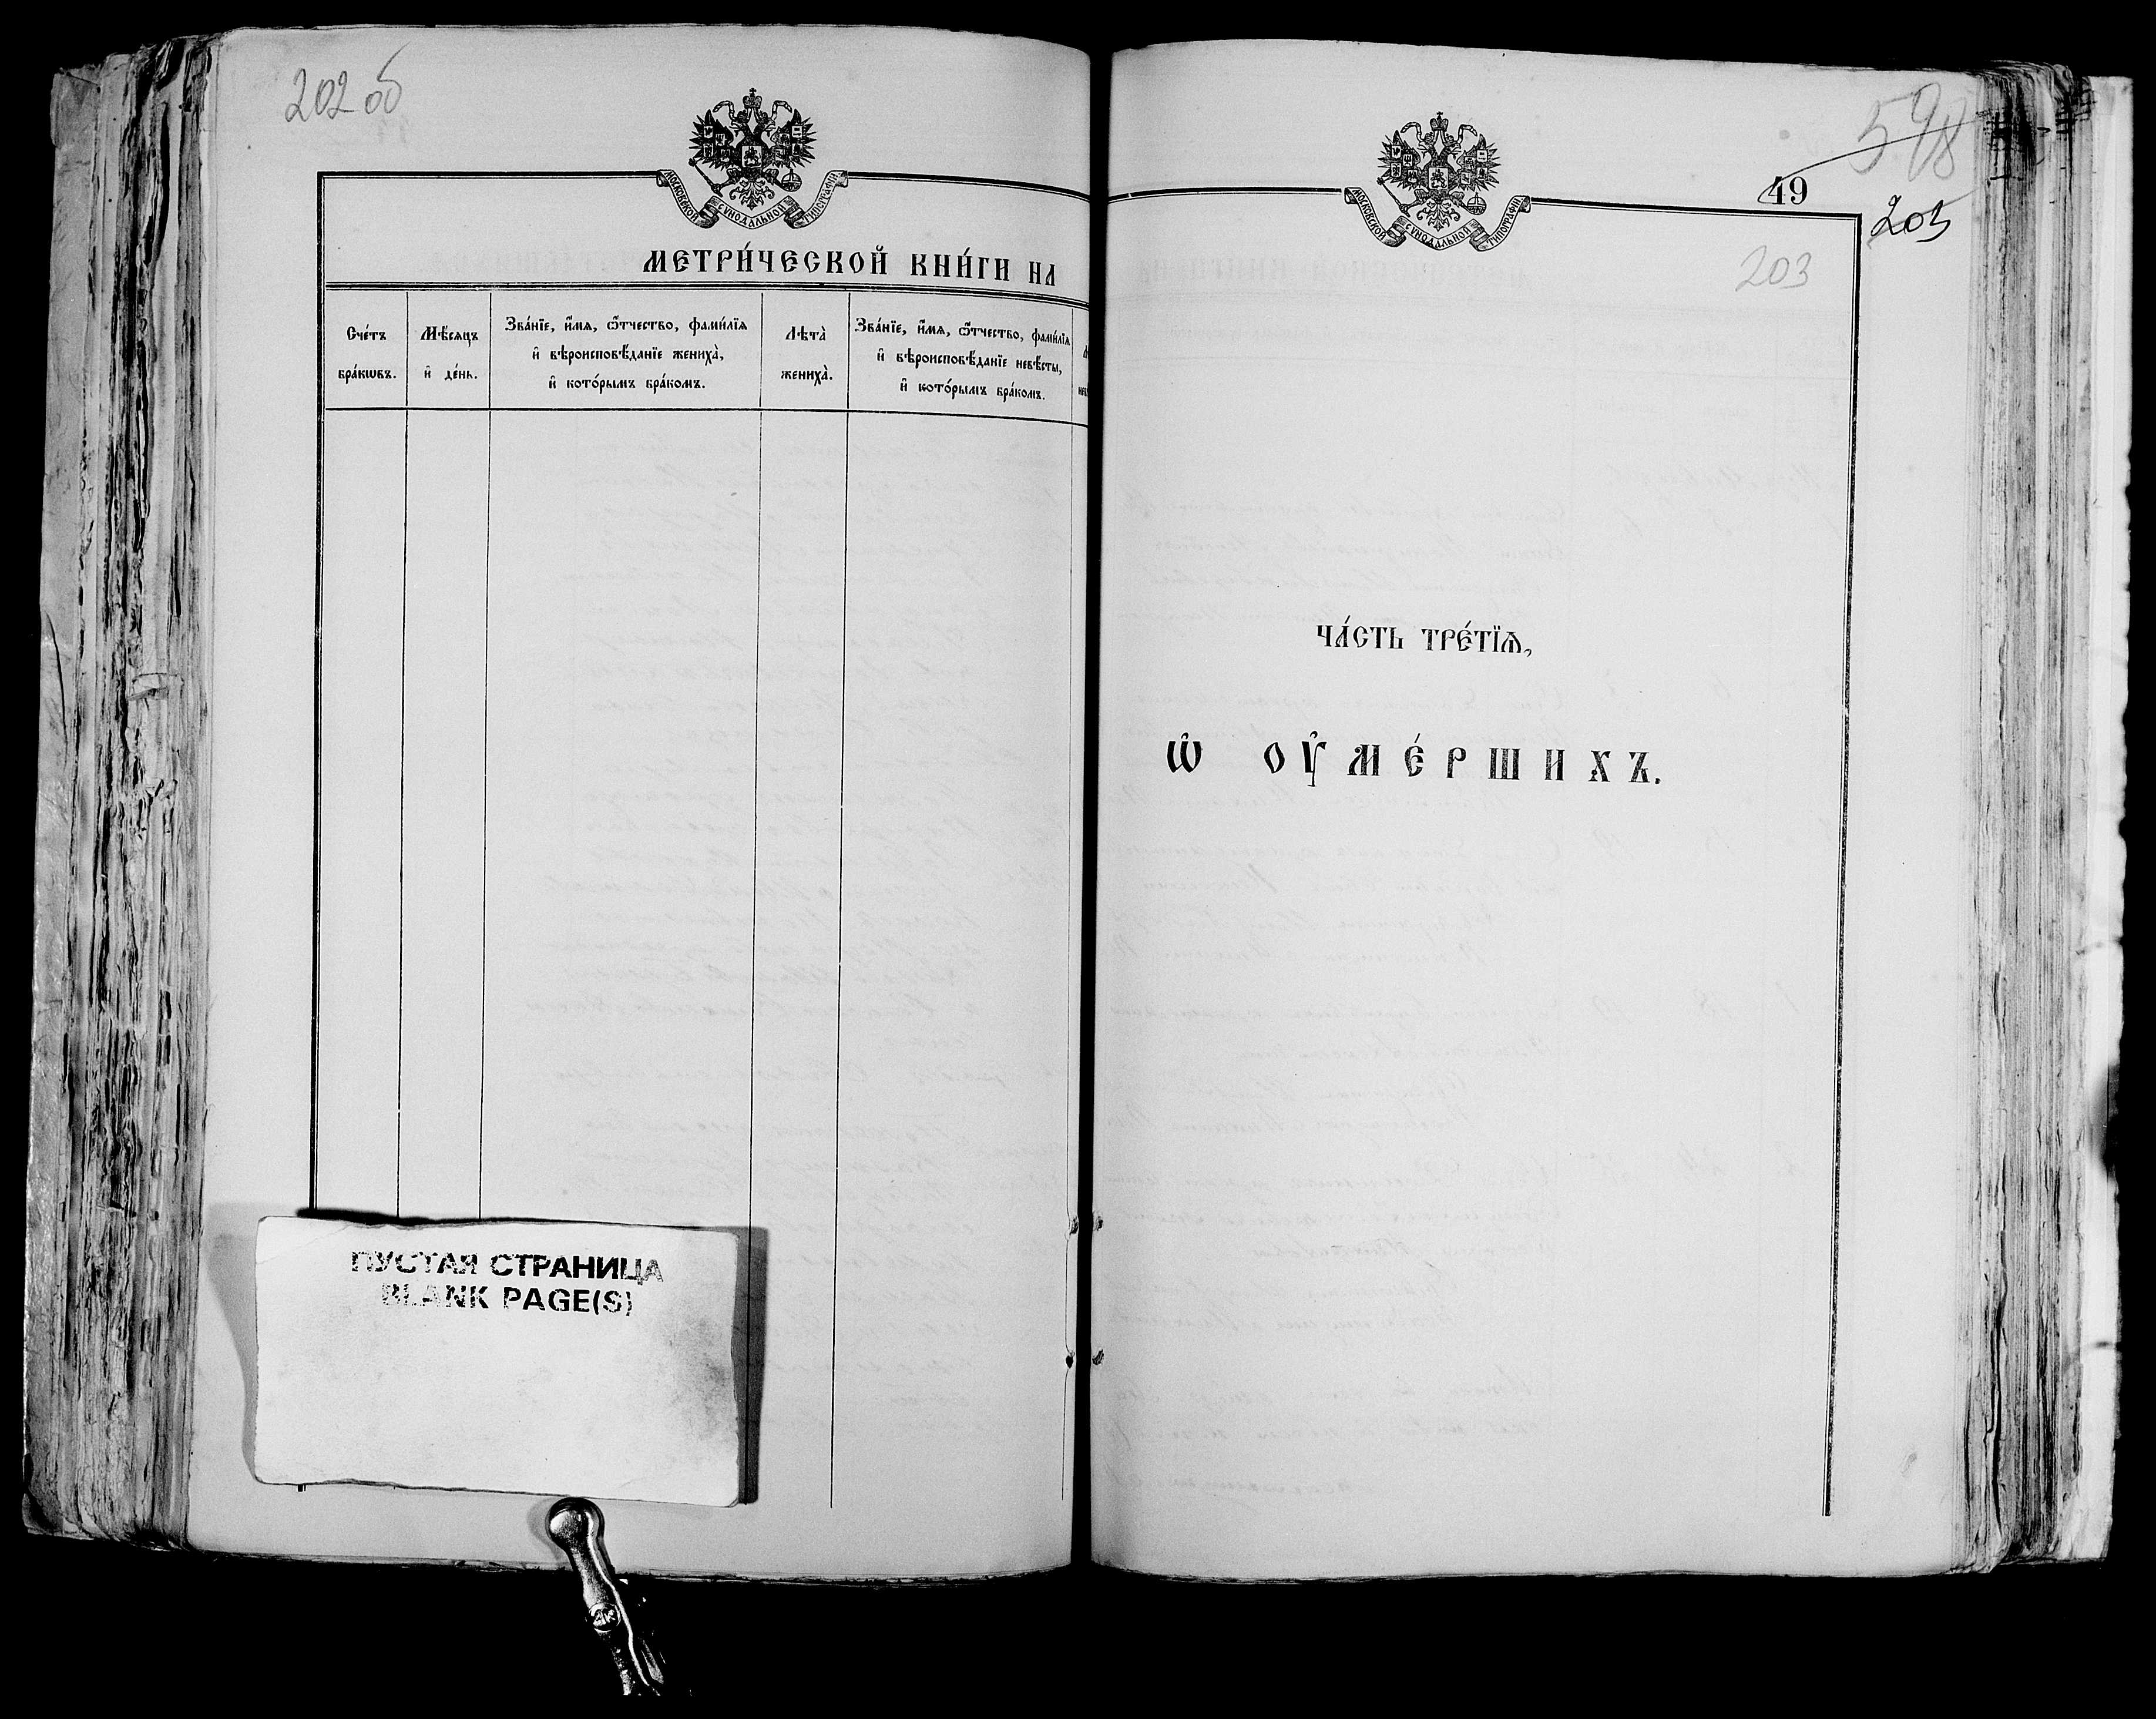 202 об
МОСКОВСКОЙ СѴНОДАЛЬНОЙ ТИПОГРАФІИ
МЕТРИ́ЧЕСКОЙ КНИ́ГИ НА
Сче́тъ бра́кѡвъ.
Мѣ́сяцъ и҆ де́нь.
Зва́нїе, и҆́мя, ѻ҆́тчество, фами́лїя
и҆ вѣроисповѣ́данїе жениха̀,
и҆ кото́рымъ бра́комъ.
Лѣта̀ жениха̀.
Зва́нїе, и҆́мя, ѻ҆́тчество, фами́лїя
и҆ вѣроисповѣ́данїе невѣ́сты,
и҆ кото́рымъ бра́комъ.
ПУСТАЯ СТРАНИЦА
BLANK PAGE(S)
МОСКОВСКОЙ СѴНОДАЛЬНОЙ ТИПОГРАФІИ
598
49
205
203
ЧА́СТЬ ТРЕ́ТЇѦ,
Ѡ҆ ОУ҆МЕ́РШИХЪ.